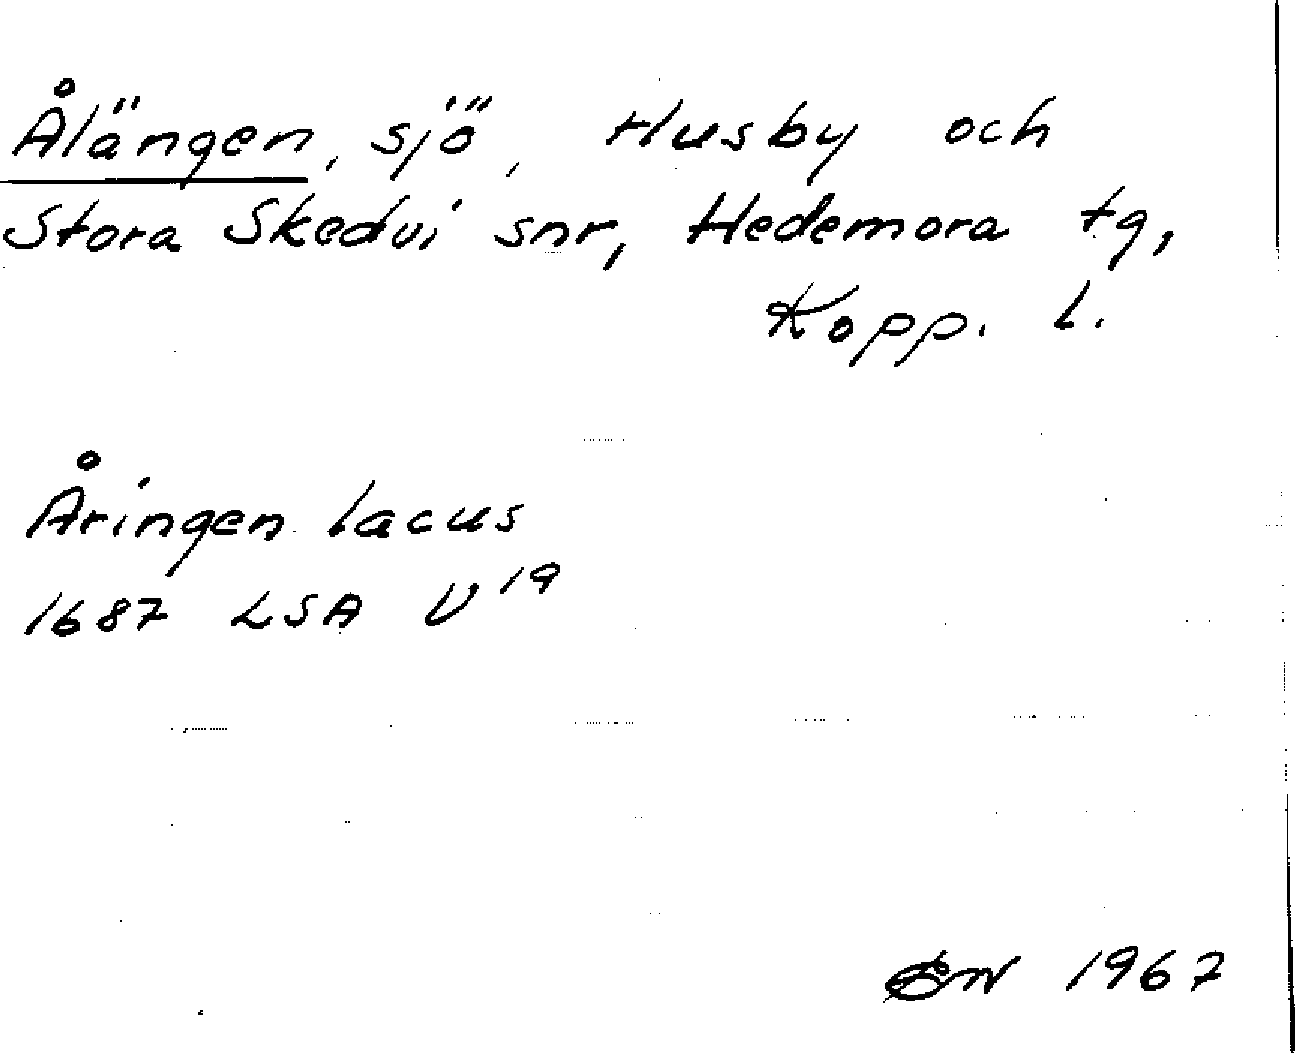 Ålängen, sjö, Husby och
Stora Skedvi snr, Hedemora tg,
Kopp. l.
Åringen lacus
1687 LSA U 19
1967